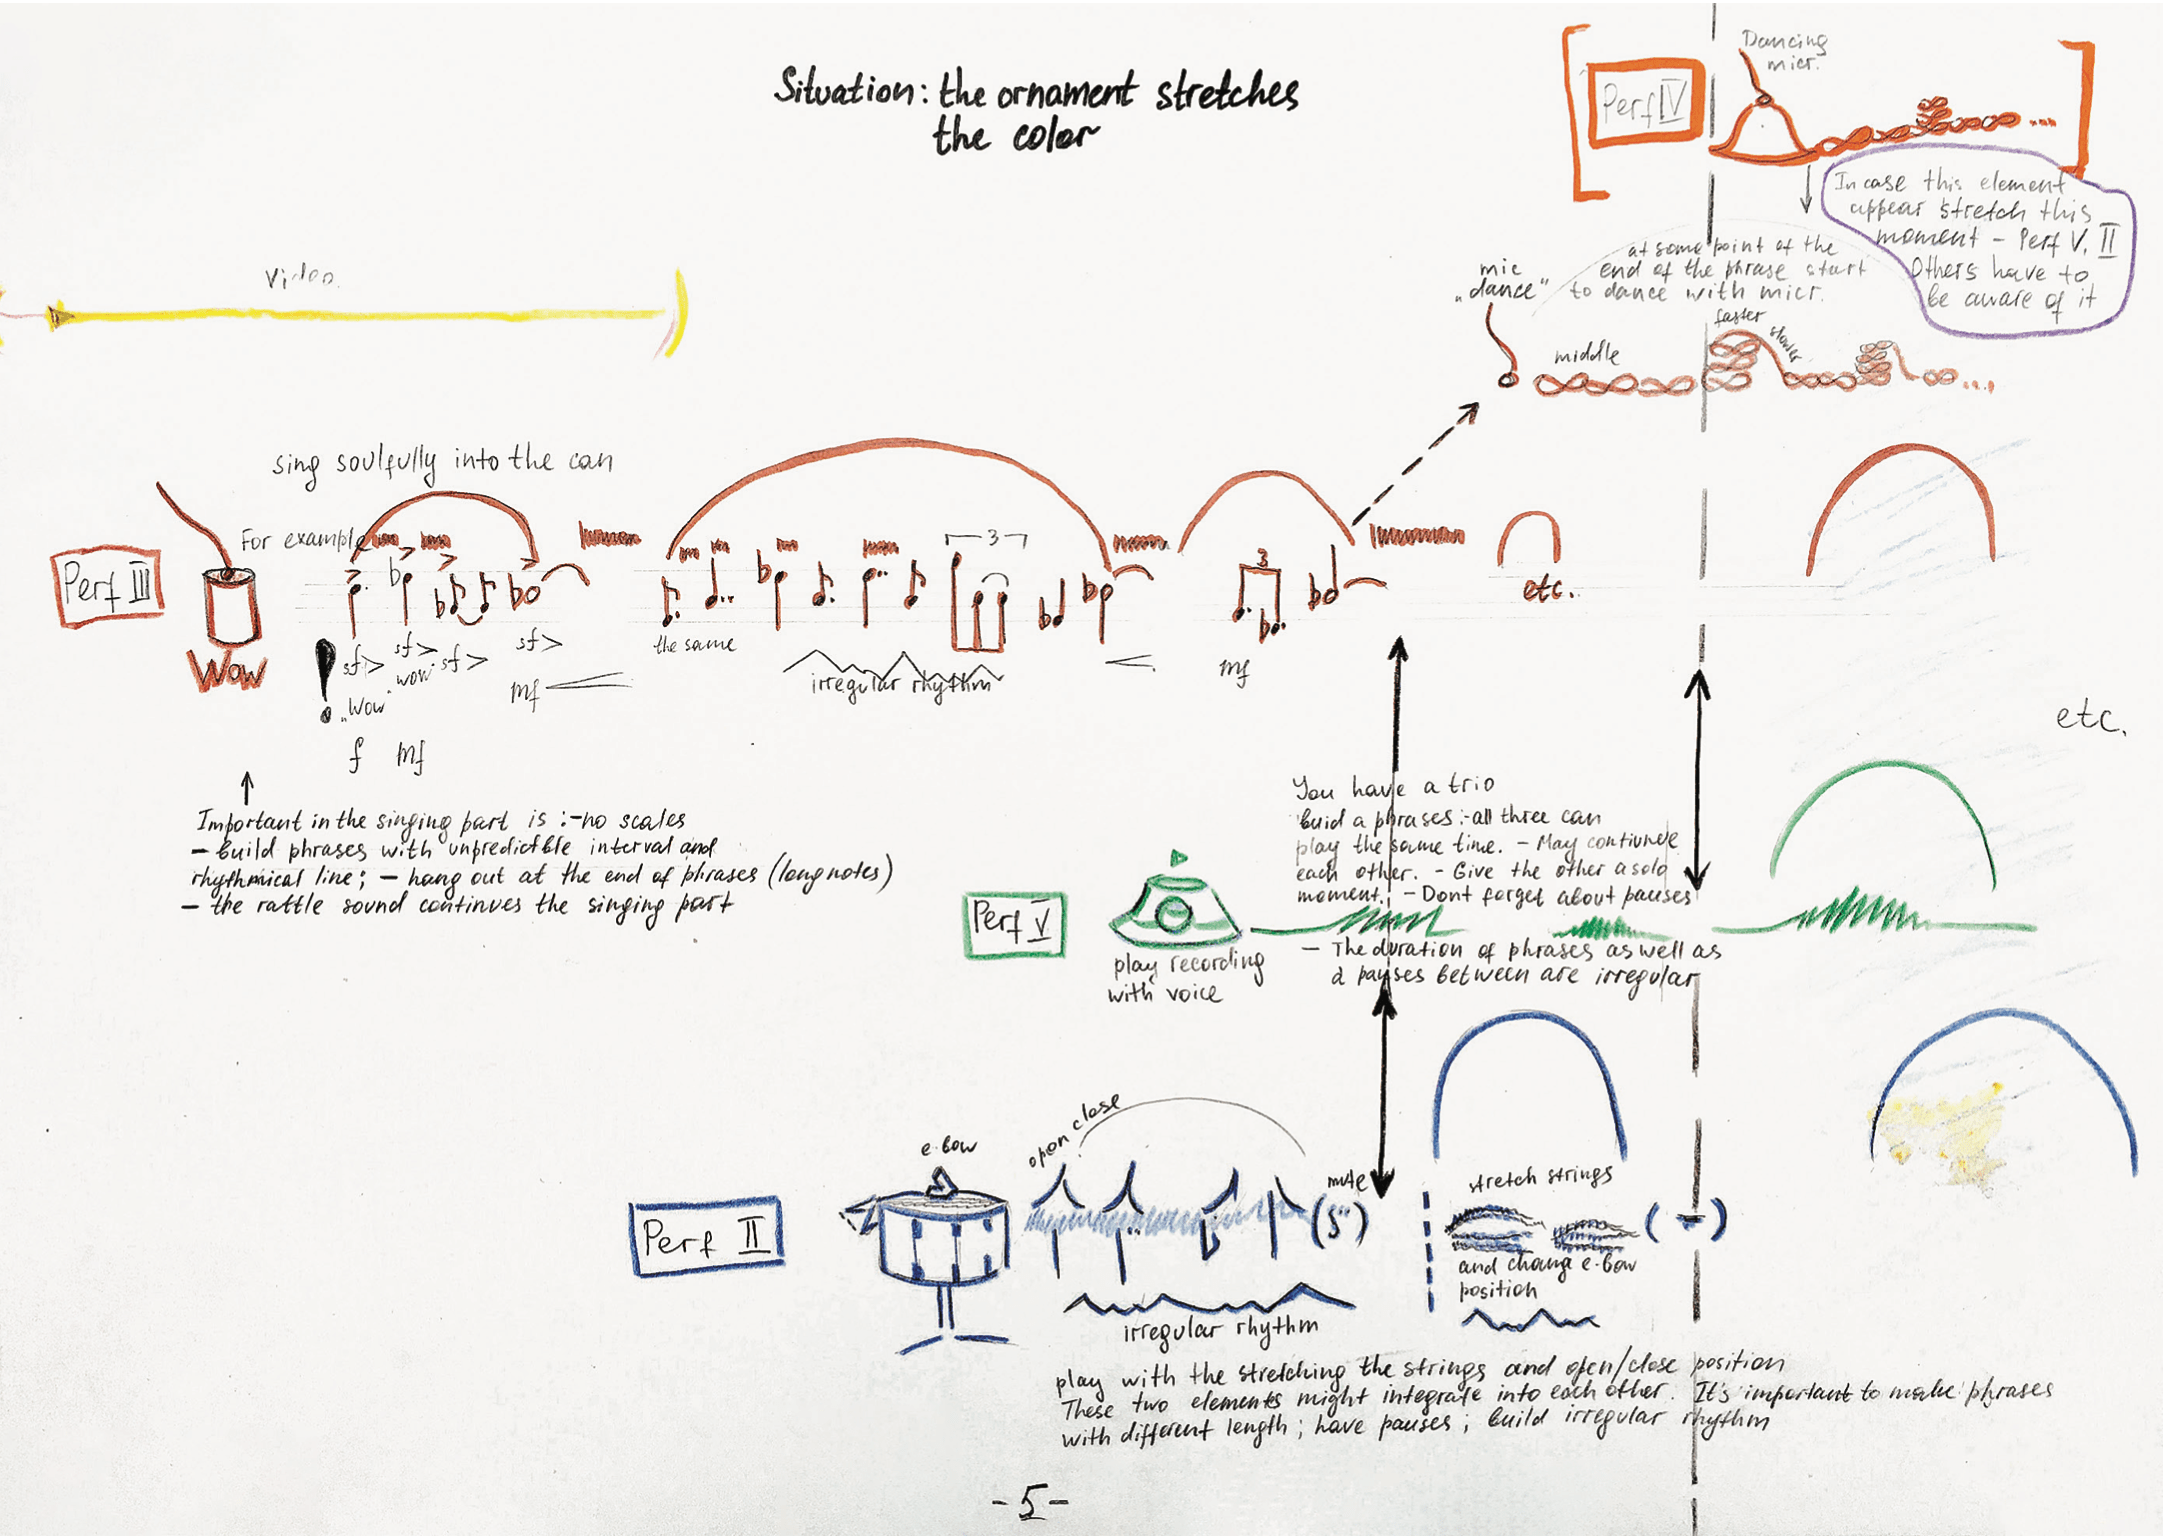 Situation: the ornament stretches
the color
Perf IV
Dancing
micr.
In case this element
appear stretch this
moment - Perf V. II
Others have to
be aware of it
at some point of the
end of the phrase start
to dance with micr.
mic
„dance"
middle
faster
slower
Video
sing soulfully into the can
For example
Perf III
Wow
sf> sf> sf> sf>
„Wow"
wow
mf
f mf
the same
3
irregular rhythm
mf
3
etc.
etc.
Important in the singing part is :- no scales
- build phrases with unpredictble interval and
rhythmical line; - hang out at the end of phrases (long notes)
- the rattle sound continues the singing part
You have a trio
buid a phrases :- all three can
play the same time. - May contiunue
each other. - Give the other a solo
moment. - Dont forget about pauses
- The duration of phrases as well as
pauses between are irregular
Perf V
play recording
with voice
Perf II
e-bow
open close
mute
(5")
irregular rhythm
stretch strings
and change e-bow
position
play with the stretching the strings and open/close position
These two elements might integrate into each other. It's important to make phrases
with different length; have pauses; build irregular rhythm
-5-